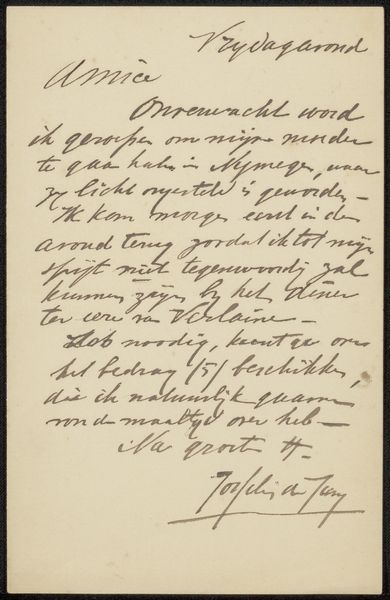 Vrydagavond
Amice
Onverwacht word
ik geroepen om mijn moeder
te gaan halen in Nymegen, waar
zy licht ongesteld is geworden –
Ik kom morgen eerst in den
avond terug zoodat ik tot mijn
spijt niet tegenwoordig zal
kunnen zijn by het diner
ter eere van Verlaine –
noodig, kunt ge over
het bedrag (5) beschikken,
die ik natuurlijk gaarne
voor de maaltyd over heb –
Na groete